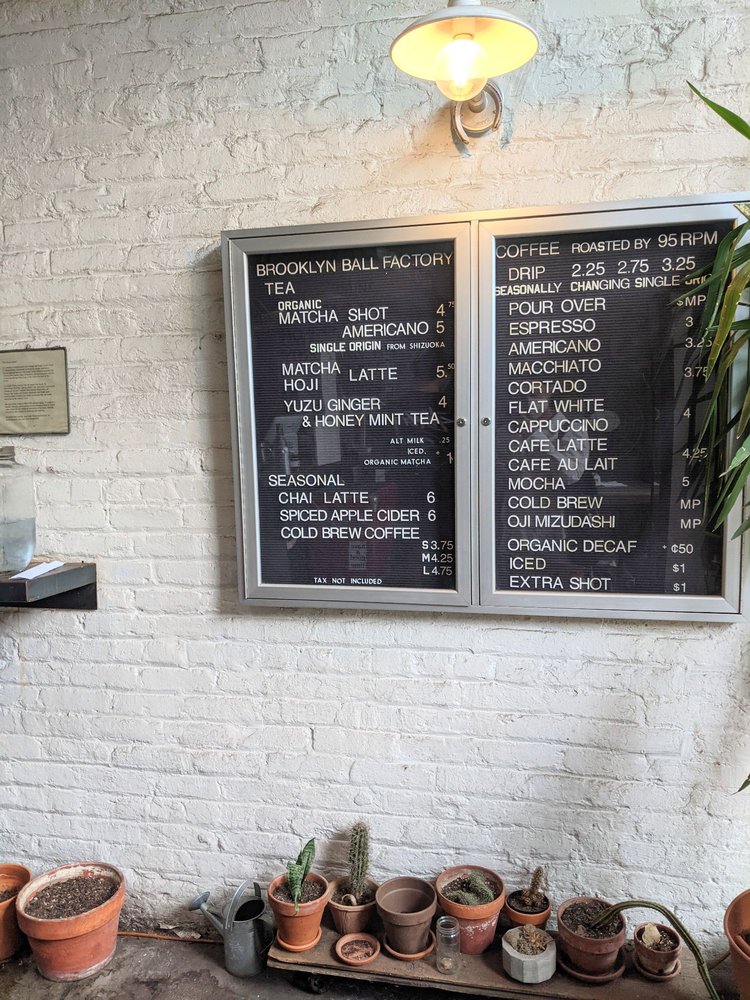 BROOKLYN BALL FACTORY
TEA
ORGANIC
MATCHA SHOT 4.75
AMERICANO 5
SINGLE ORIGIN FROM SHIZUOKA
MATCHA
HOJI LATTE 5.50
YUZU GINGER 4
& HONEY MINT TEA
ALT MILK .25
ICED. +
ORGANIC MATCHA 1
SEASONAL
CHAI LATTE 6
SPICED APPLE CIDER 6
COLD BREW COFFEE
S 3.75
M 4.25
L 4.75
TAX NOT INCLUDED
COFFEE ROASTED BY 95 RPM
DRIP 2.25 2.75 3.25
SEASONALLY CHANGING SINGLE
POUR OVER $MP
ESPRESSO 3
AMERICANO 3.25
MACCHIATO 3.75
CORTADO
FLAT WHITE 4
CAPPUCCINO
CAFE LATTE 4.25
CAFE AU LAIT
MOCHA 5
COLD BREW MP
OJI MIZUDASHI MP
ORGANIC DECAF + ¢50
ICED $1
EXTRA SHOT $1